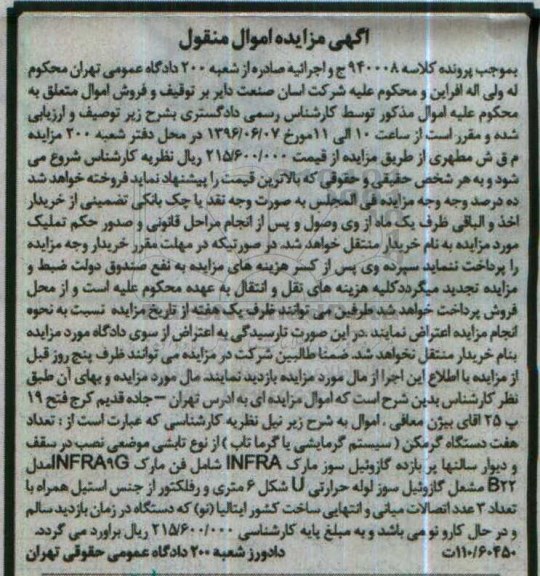 آگهی مزایده اموال منقول
بموجب پرونده کلاسه ۹۴۰۰۰۸ ج و اجرائیه صادره از شعبه ۲۰۰ دادگاه عمومی تهران محکوم
له ولی اله افراین و محکوم علیه شرکت اسان صنعت دایر بر توقیف و فروش اموال متعلق به
محکوم علیه اموال مذکور توسط کارشناس رسمی دادگستری بشرح زیر توصیف و ارزیابی
شده و مقرر است از ساعت ۱۰ الی ۱۱ مورخ ۱۳۹۶/۰۶/۰۷ در محل دفتر شعبه ۲۰۰ مزایده
م ق ش مطهری از طریق مزایده از قیمت ۲۱۵/۶۰۰/۰۰۰ ریال نظریه کارشناس شروع می
شود و به هر شخص حقیقی و حقوقی که بالاترین قیمت را پیشنهاد نماید فروخته خواهد شد
ده درصد وجه وجه مزایده فی المجلس به صورت وجه نقد یا چک بانکی تضمینی از خریدار
اخذ و الباقی ظرف یک ماه از وی وصول و پس از انجام مراحل قانونی و صدور حکم تملیک
مورد مزایده به نام خریدار منتقل خواهد شد. در صورتیکه در مهلت مقرر خریدار وجه مزایده
را پرداخت ننماید سپرده وی پس از کسر هزینه های مزایده به نفع صندوق دولت ضبط و
مزایده تجدید میگردد کلیه هزینه های نقل و انتقال به عهده محکوم علیه است و از محل
فروش پرداخت خواهد شد طرفین می توانند ظرف یک هفته از تاریخ مزایده نسبت به نحوه
انجام مزایده اعتراض نمایند .در این صورت تا رسیدگی به اعتراض از سوی دادگاه مورد مزایده
بنام خریدار منتقل نخواهد شد. ضمنا طالبین شرکت در مزایده می توانند ظرف پنج روز قبل
از مزایده با اطلاع این اجرا از مال مورد مزایده بازدید نمایند. مال مورد مزایده و بهای آن طبق
نظر کارشناس بدین شرح است که اموال مزایده ای به ادرس تهران – جاده قدیم کرج فتح ۱۹
پ ۲۵ اقای بیژن معافی ، اموال به شرح زیر نیل نظریه کارشناسی که عبارت است از : تعداد
هفت دستگاه گرمکن ( سیستم گرمایشی یا گرما تاب ) از نوع تابشی موضعی نصب در سقف
و دیوار سالنها پر بازده گازوئیل سوز مارک INFRA شامل فن مارک INFRA۹Gمدل
B۲۲ مشعل گازوئیل سوز لوله حرارتی U شکل ۶ متری و رفلکتور از جنس استیل همراه با
تعداد ۳ عدد اتصالات میانی و انتهایی ساخت کشور ایتالیا (نو) که دستگاه در زمان بازدید سالم
و در حال کار و نو می باشد و به مبلغ پایه کارشناسی ۲۱۵/۶۰۰/۰۰۰ ریال براورد می گردد.
۱۱۰/۶۰۴۵۰ت دادورز شعبه ۲۰۰ دادگاه عمومی حقوقی تهران